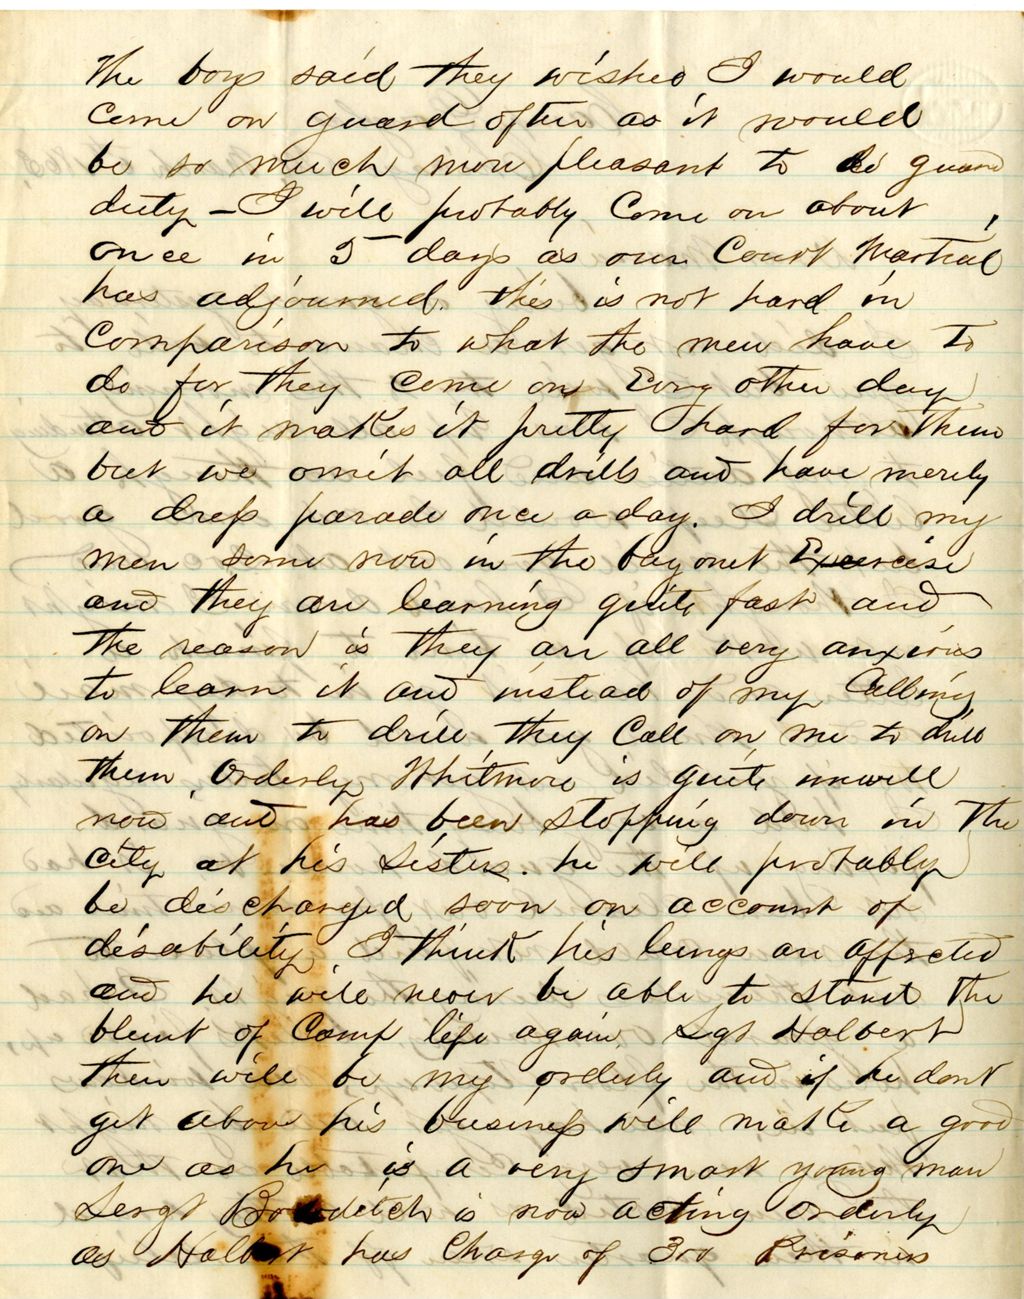 The boys said they wished I would
come on guard often as it would
be so much more pleasant to do guard
duty – I will probably come on about
once in 5 days as our Court Martial
has adjourned. this is not hard in
comparison to what the men have to
do for they come on Evry other day
and it makes it pretty hard for them
but we omit all drills and have merely
a dress parade once a day. I drill my
men some now in the bayonet Exercise
and they are learning quite fast and
the reason is they are all very anxious
to learn it and instead of my Calling
on them to drill they Call on me to drill
them Orderly Whitmore is quite unwell
now and has been stopping down in the
city at his sisters. he will probably
be discharged soon on account of
disability I think his lungs are affected
and he will never be able to stand the
blunt of Camp life again, Sgt Halbert
then will be my orderly and if he dont
get above his business will make a good
one as he is a very smart young man
Sergt Bowditch is now acting Orderly
as Halbert has Charge of 300 Prisoners